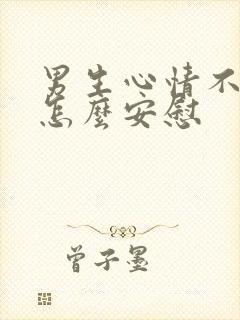 男生心情不
怎麼安慰
曾子墨